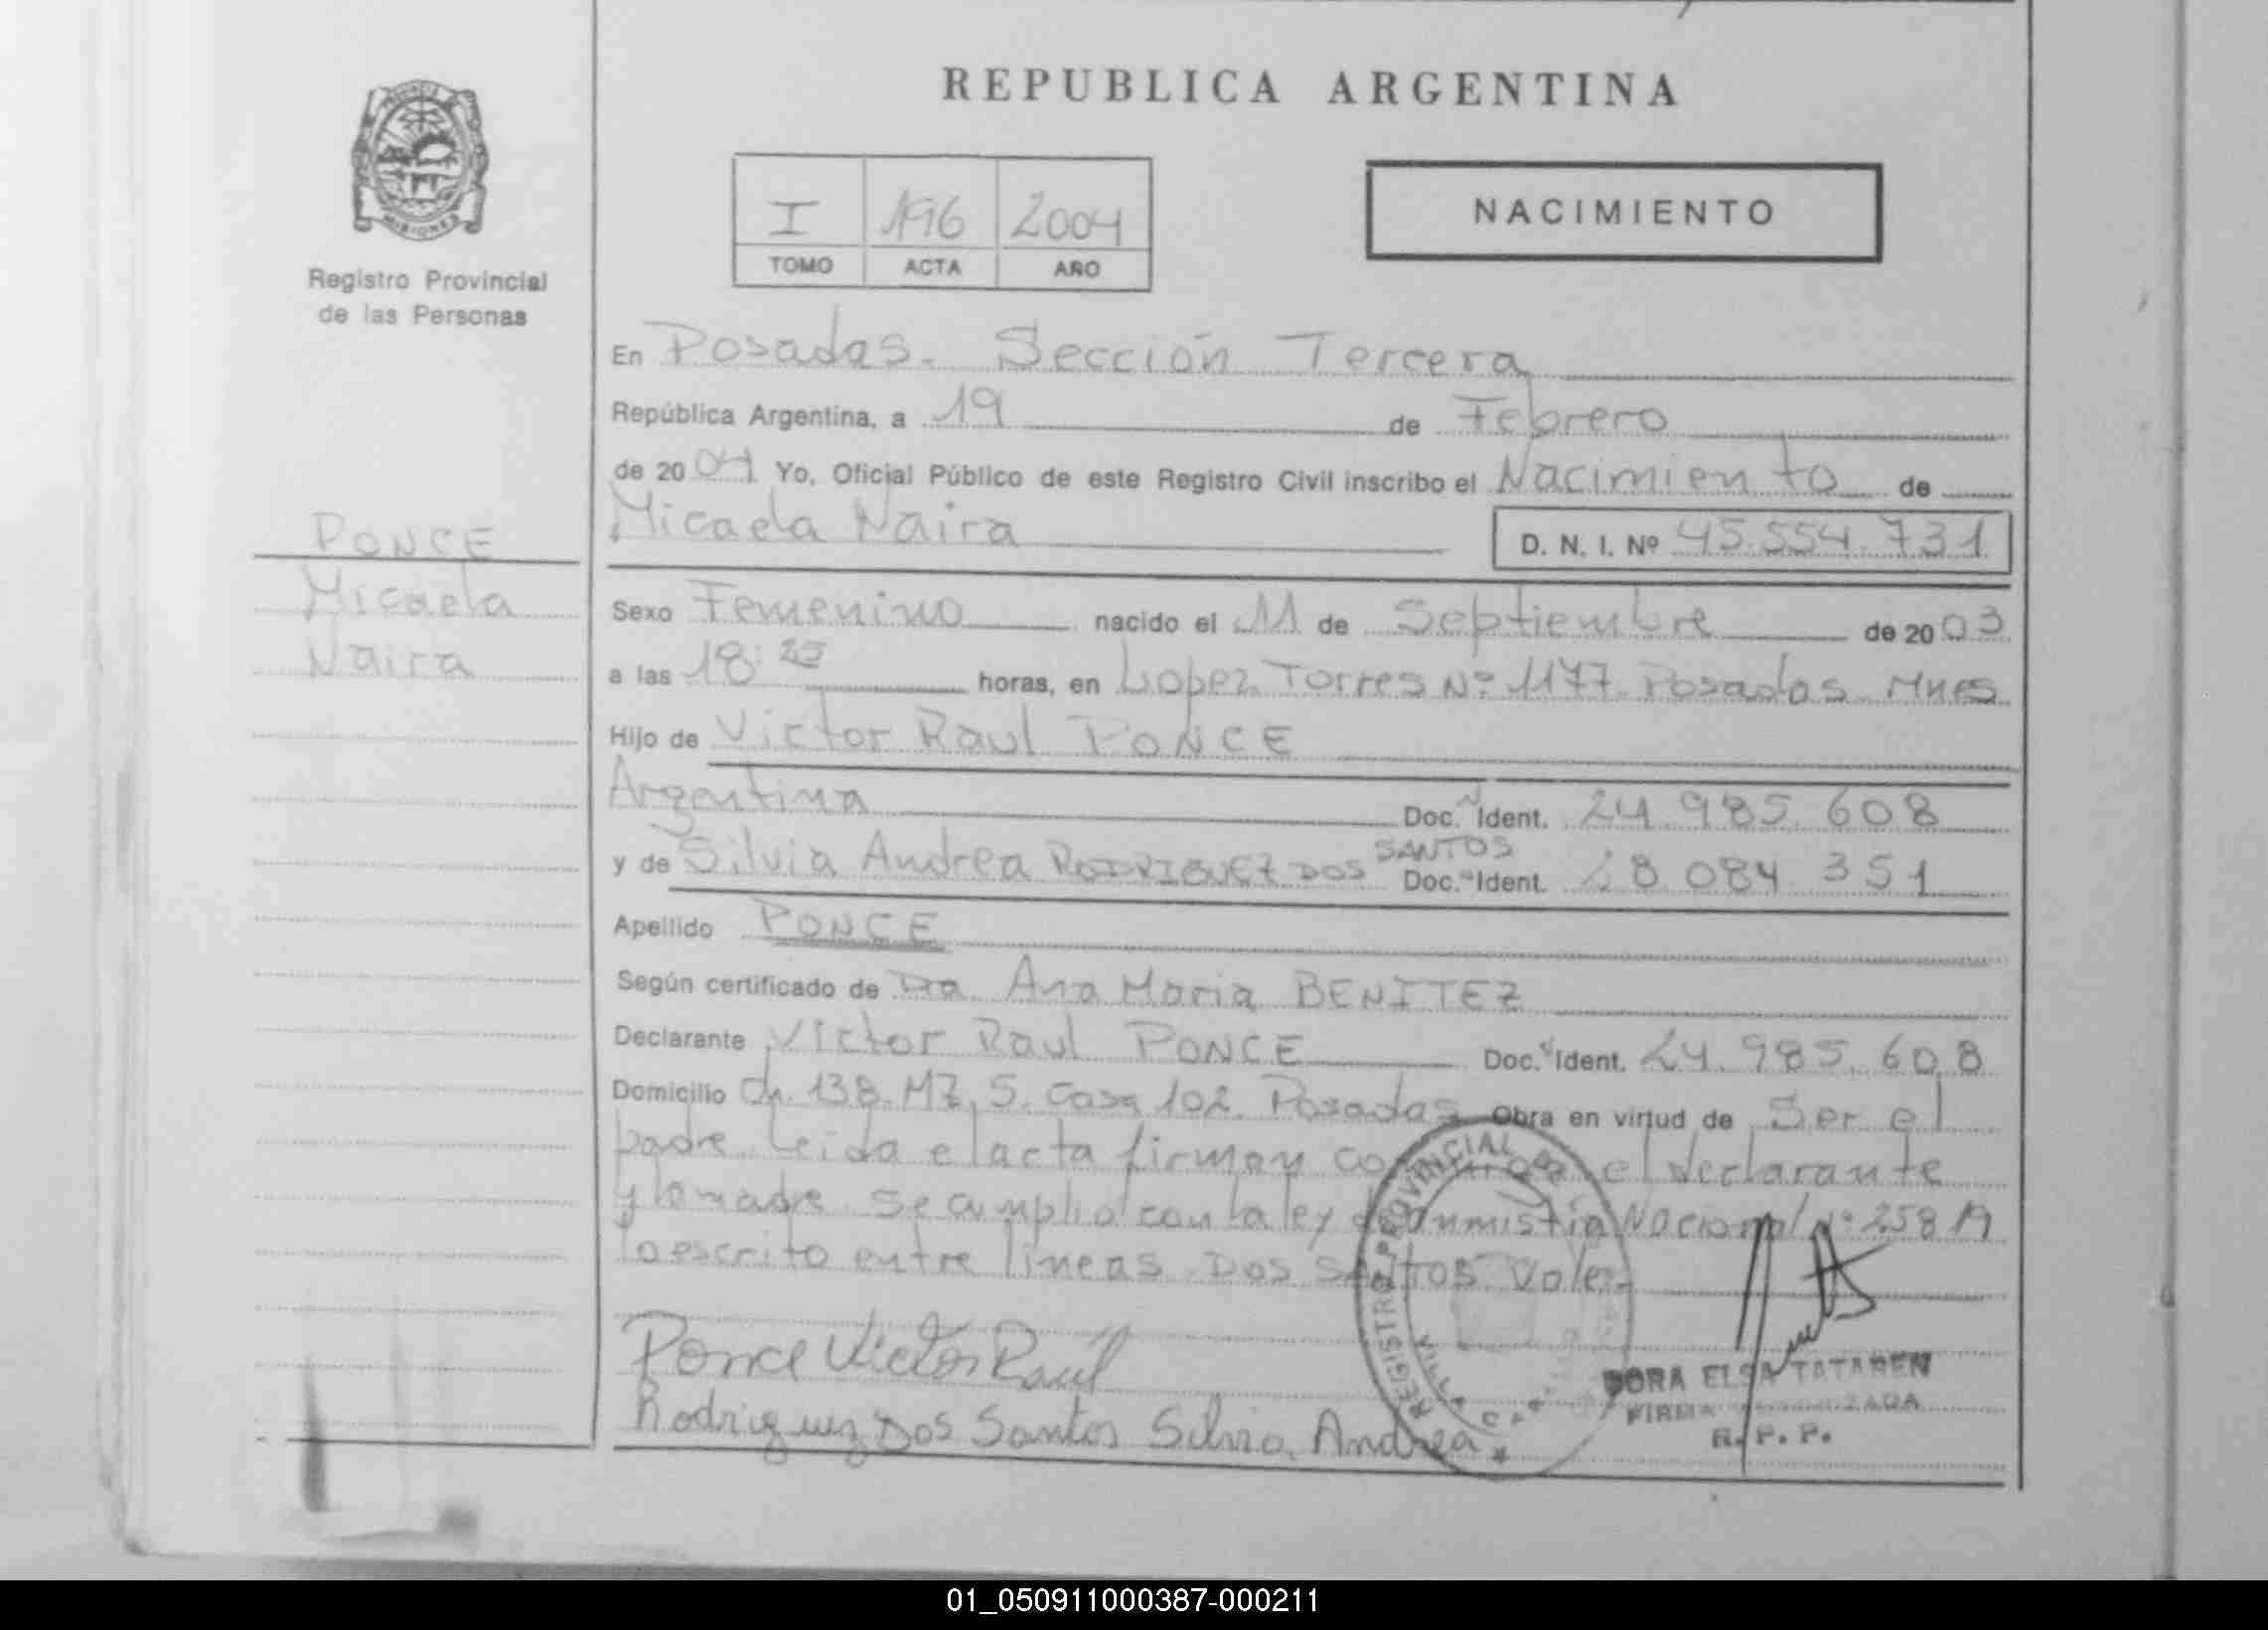 REPUBLICA ARGENTINA
I 196 2004
TOMO ACTA AÑO
NACIMIENTO
MISIONES
Registro Provincial
de las Personas
En Posadas. Sección Tercera
República Argentina, a 19 de Febrero
de 20 04 Yo, Oficial Público de este Registro Civil inscribo el Nacimiento de
Micaela Naira D. N. I. Nº 45.554.731
PONCE
Micaela
Naira
Sexo Femenino nacido el 11 de Septiembre de 20 03
a las 18:25 horas, en Lopez Torres Nº 1177. Posadas. Mnes
Hijo de Victor Raul PONCE
Argentina Doc. Ident. 24.985.608
SANTOS
y de Silvia Andrea RODRIGUEZ DOS Doc. Ident. 28.084.351
Apellido PONCE
Según certificado de Dra. Ana Maria BENITEZ
Declarante Victor Raul PONCE Doc. Ident. 24.985.608
Domicilio Ch. 138. MZ. 5. Casa 102. Posadas Obra en virtud de Ser el
padre. Leida el acta firman el declarante
y la madre. Se cumplió con la ley de Amnistia Nacional Nº 25819
lo escrito entre lineas. DOS SANTOS. Vale.-
Ponce Victor Raúl
Rodriguez Dos Santos Silvia Andrea
REGISTRO PROVINCIAL DE
DORA ELSA TATAREN
FIRMA AUTORIZADA
R. P. P.
01_050911000387-000211